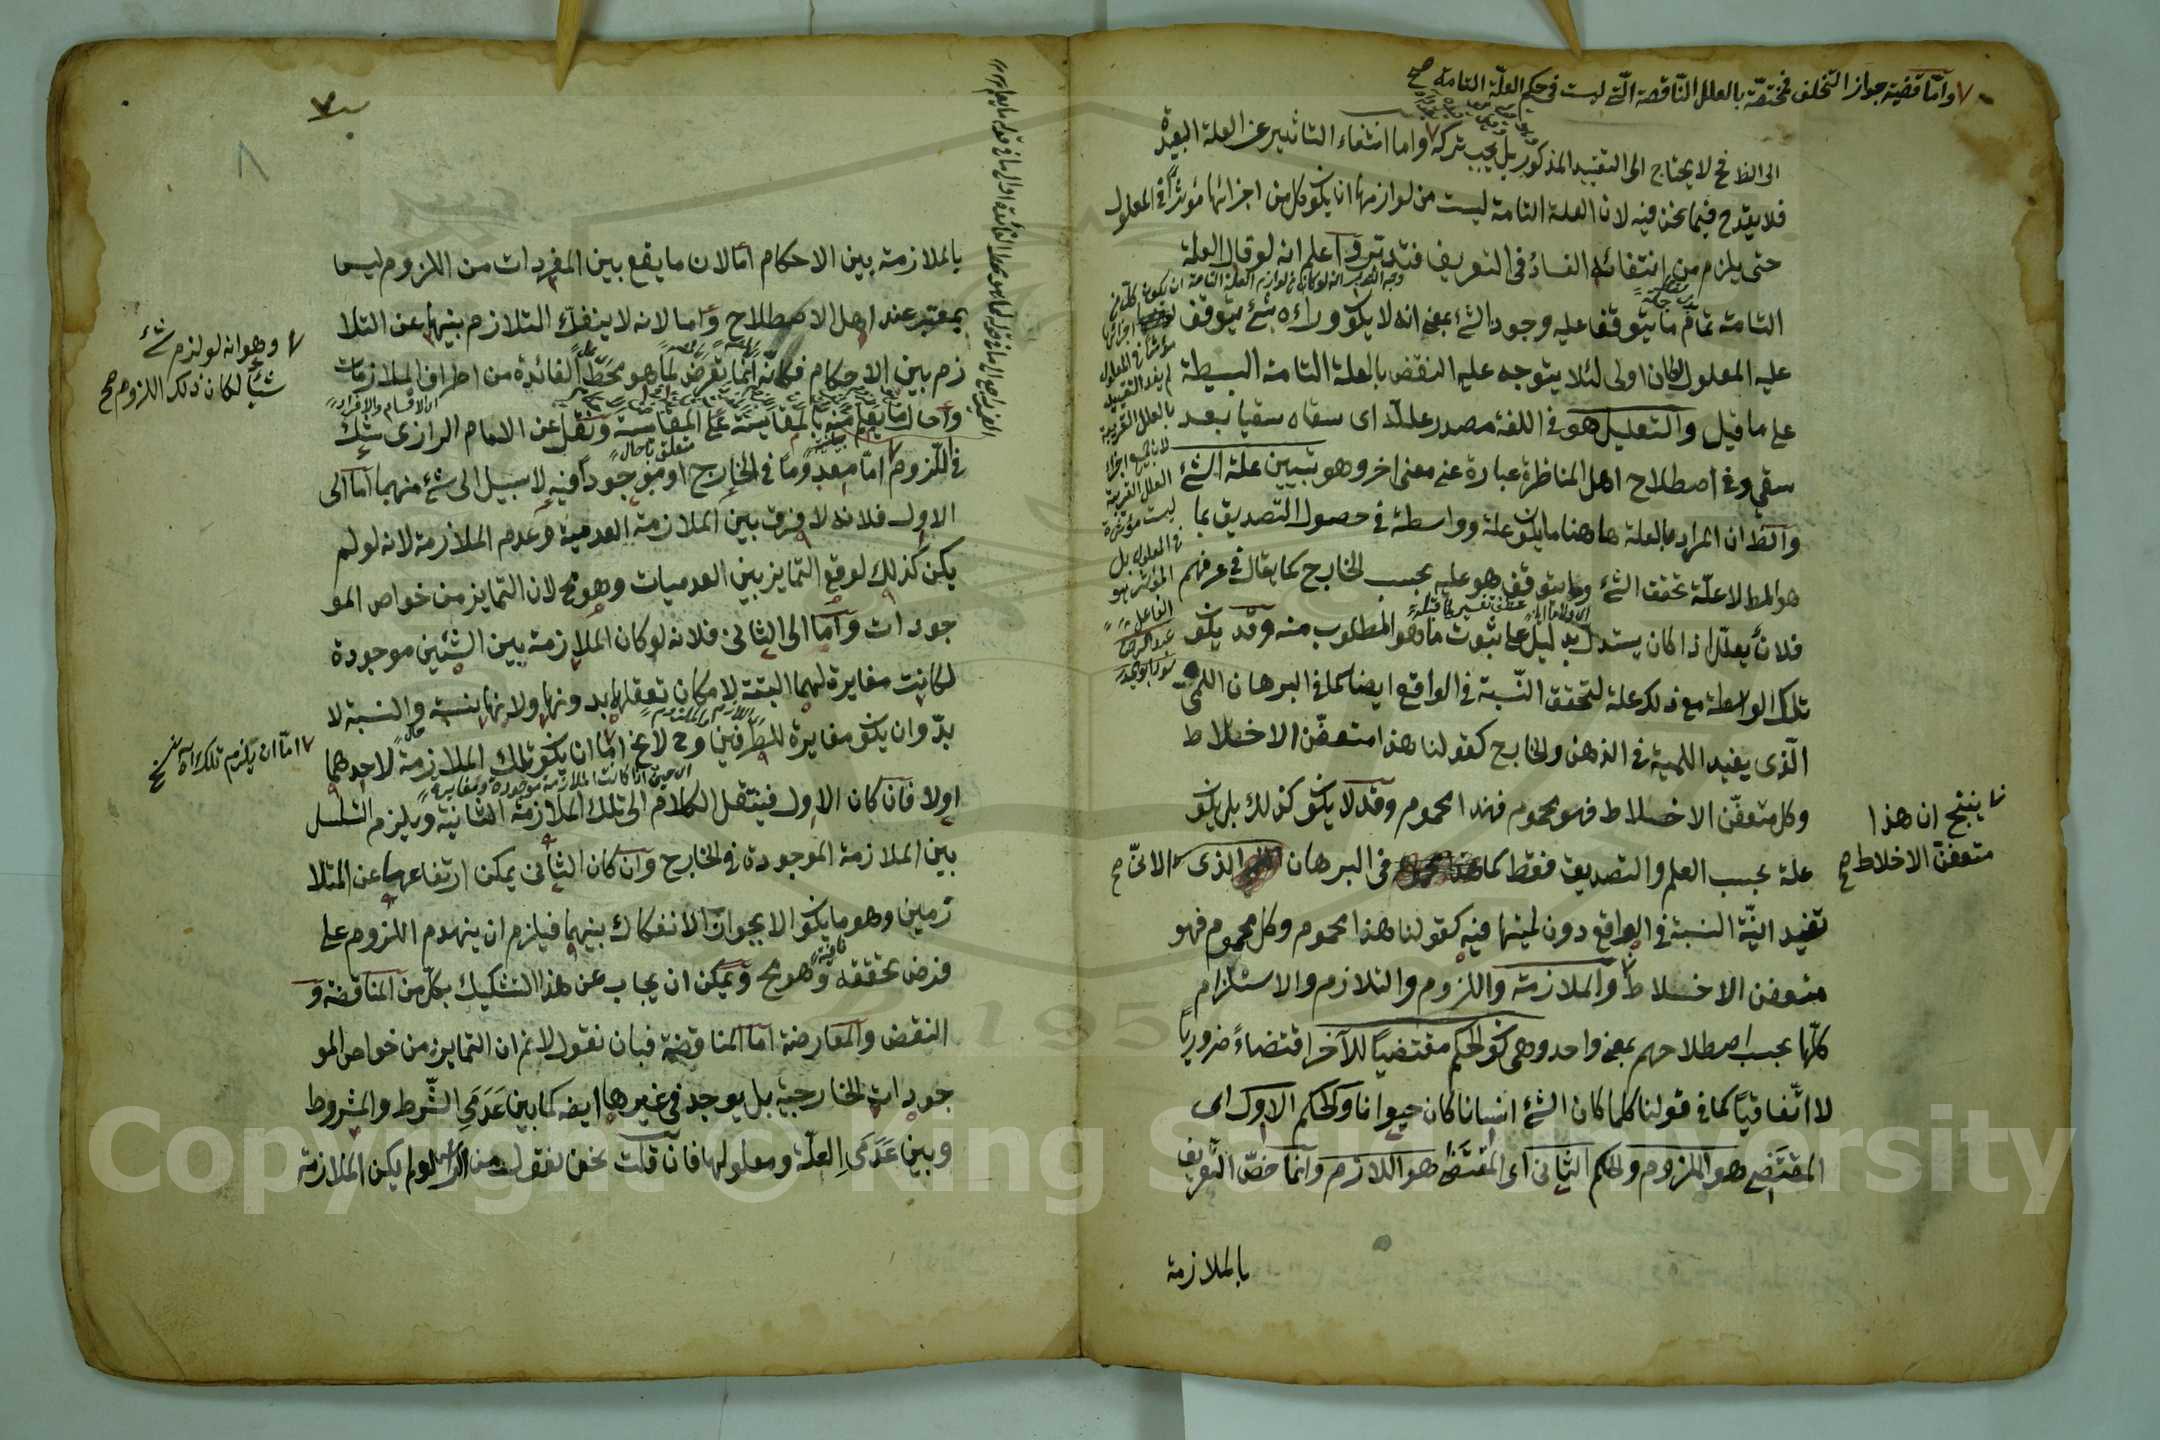 ٧ واما قضية جواز التخلف فمختصة بالعلل الناقصة التى ليست فى حكم العلة التامة صح
الى الظ فح لا يحتاج الى التقييد المذكور بل يجب تركه ٧ واما انتفاء التاثير عن العلة البعيدة
فلا يقدح فيما نحن فيه لان العلة التامة ليست من لوازمها ان يكون كل من اجزائها مؤثرا فى المعلول
حتى يلزم من انتفائه الفساد فى التعريف فتدبر ثم اعلم انه لو قال العلة
التامة تمام ما يتوقف عليه وجود الشئ بمعنى انه لا يكون وراءه شئ يتوقف
عليه المعلول لكان اولى لئلا يتوجه عليه النقض بالعلة التامة البسيطة
على ما قيل والتعليل هو فى اللغة مصدر علله اى سقاه سقيا بعد
سقى وفى اصطلاح اهل المناظرة عبارة عن معنى اخر وهو تبيين علة الشئ
والظ ان المراد بالعلة هاهنا ما يكون علة وواسطة فى حصول التصديق بما
هو المط لا علة تحقق الشئ وما يتوقف هو عليه بحسب الخارج كما يقال فى عرفهم
فلان يعلل اذا كان يستدل بدليل على ثبوت ما هو المطلوب منه وقد يكون
تلك الواسطة مع ذلك علة لتحقق النسبة فى الواقع ايضا كما فى البرهان اللمى
الذى يفيد اللمية فى الذهن والخارج كقولنا هذا متعفن الاخلاط
وكل متعفن الاخلاط فهو محموم فهذا محموم وقد لا يكون كذلك بل يكون
علة بحسب العلم والتصديق فقط كما فى البرهان الانى صح الذى
تفيد انية النسبة فى الواقع دون لميتها فيه كقولنا هذا محموم وكل محموم فهو
متعفن الاخلاط والملازمة واللزوم والتلازم والاستلزام
كلها بحسب اصطلاحهم بمعنى واحد وهى كون الحكم مقتضيا للآخر اقتضاء ضروريا
لا اتفاقيا كما فى قولنا كلما كان الشئ انسانا كان حيوانا والحكم الاول اى
المقتضى هو الملزوم والحكم الثانى اى المقتضى هو اللازم وانما خص التعريف
بالملازمة
ينتج ان هذا
متعفن الاخلاط صح
وجه التعجب انه لو كان من لوازم العلة التامة ان يكون كل من
اجزائها
مؤثرا فى المعلول
لم يفد التقييد
بالعلل القريبة
العلل القريبة
ليست مؤثرة
فى المعلول بل
المؤثر هو
الفاعل
عطف تفسير لما قبله
٧
٨
بالملازمة بين الاحكام اما لان ما يقع بين المفردات من اللزوم ليس
بمعتبر عند اهل الاصطلاح واما لانه لا ينفك التلازم بينها عن التلا
زم بين الاحكام فكانه انما تعرض لما هو محط الفائدة من اطراف الملازمات
واحال ما يعلم منه بالمقايسة على المقايسة ونقل عن الامام الرازى شك
فى اللزوم اما معدوما فى الخارج او موجودا فيه لا سبيل الى شئ منهما اما الى
الاول فلانه لا فرق بين الملازمة العدمية وعدم الملازمة لانه لو لم
يكن كذلك لوقع التمايز بين العدميات وهو مح لان التمايز من خواص المو
جودات واما الى الثانى فلانه لو كان الملازمة بين الشيئين موجودة
لكانت مغايرة لهما البتة لامكان تعقلها بدونها ولانها نسبة والنسبة لا
بد وان يكون مغايرة للطرفين وح لا يخ اما ان يكون تلك الملازمة لاحدهما
اولا فان كان الاول فينتقل الكلام الى تلك الملازمة الثانية ويلزم التسلسل
بين الملازمة الموجودة فى الخارج وان كان الثانى يمكن ارتفاعها عن المتلا
زمين وهو ما يكون الا بجواز الانفكاك بينهما فيلزم ان ينهدم اللزوم على
فرض تحققه وهو مح ويمكن ان يجاب عن هذا التشكيك بكل من المناقضة و
النقض والمعارضة اما المناقضة فبان نقول لانم ان التمايز من خواص المو
جودات الخارجية بل يوجد فى غيرها ايضه كما بين عدمى الشرط والمشروط
وبين عدمى العلة ومعلولها فان قلت نحن نقول من الرأس لو لم يكن الملازمة
وهو انه لو لزم شئ
شيئا لكان ذلك اللزوم صح
متعلق باحال
اى حين اذا كانت الملازمة موجودة ومغايرة
اما ان يلزم تلك